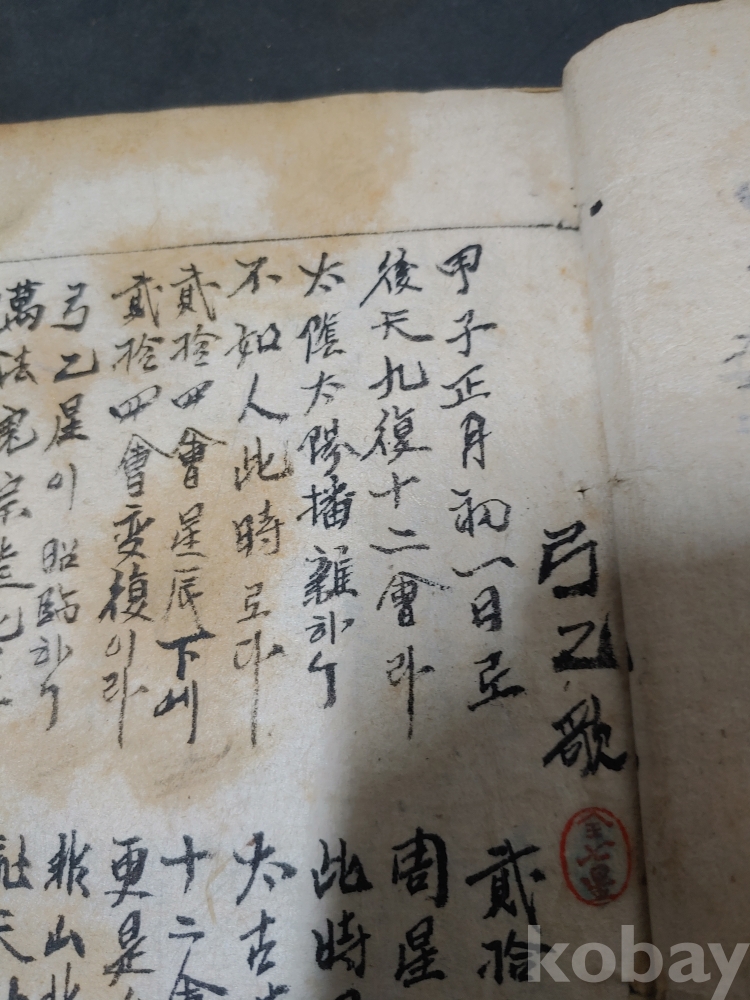 弓乙歌
甲子正月初一日로
後天九復十二會라
太陰太陽播離하니
不如人此時로다
貳拾四會星辰下에
貳拾四會変復이라
弓乙星이 昭臨하니
萬法
貳拾
周星
此時
太古
十二會
更是
山
天
kobay